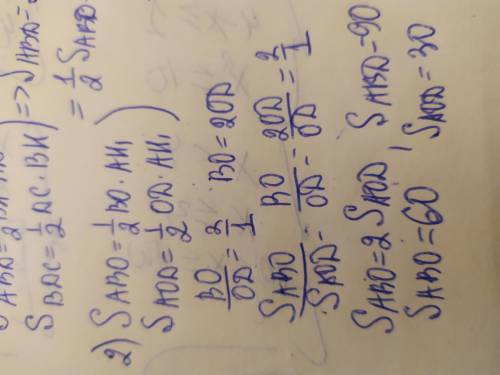 S_ABD = 1/2
S_BDC = 1/2 DC · BK) => S_ABD =
= 1/2 S_ABD
2) S_ABO = 1/2 BO · AK₁
S_AOD = 1/2 OD · AK₁
BO/OD = 2/1 BO = 2OD
S_ABO/S_AOD = BO/OD = 2OD/OD = 2/1
S_ABO = 2 S_AOD, S_ABD = 90
S_ABO = 60 S_AOD = 30